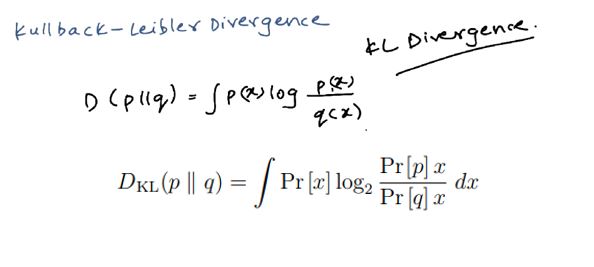 Kullback-Leibler Divergence
KL Divergence.
D (p||q) = ∫ p(x) log p(x)/q(x)
D_KL(p ∥ q) = ∫ Pr [x] log₂ Pr [p] x / Pr [q] x dx